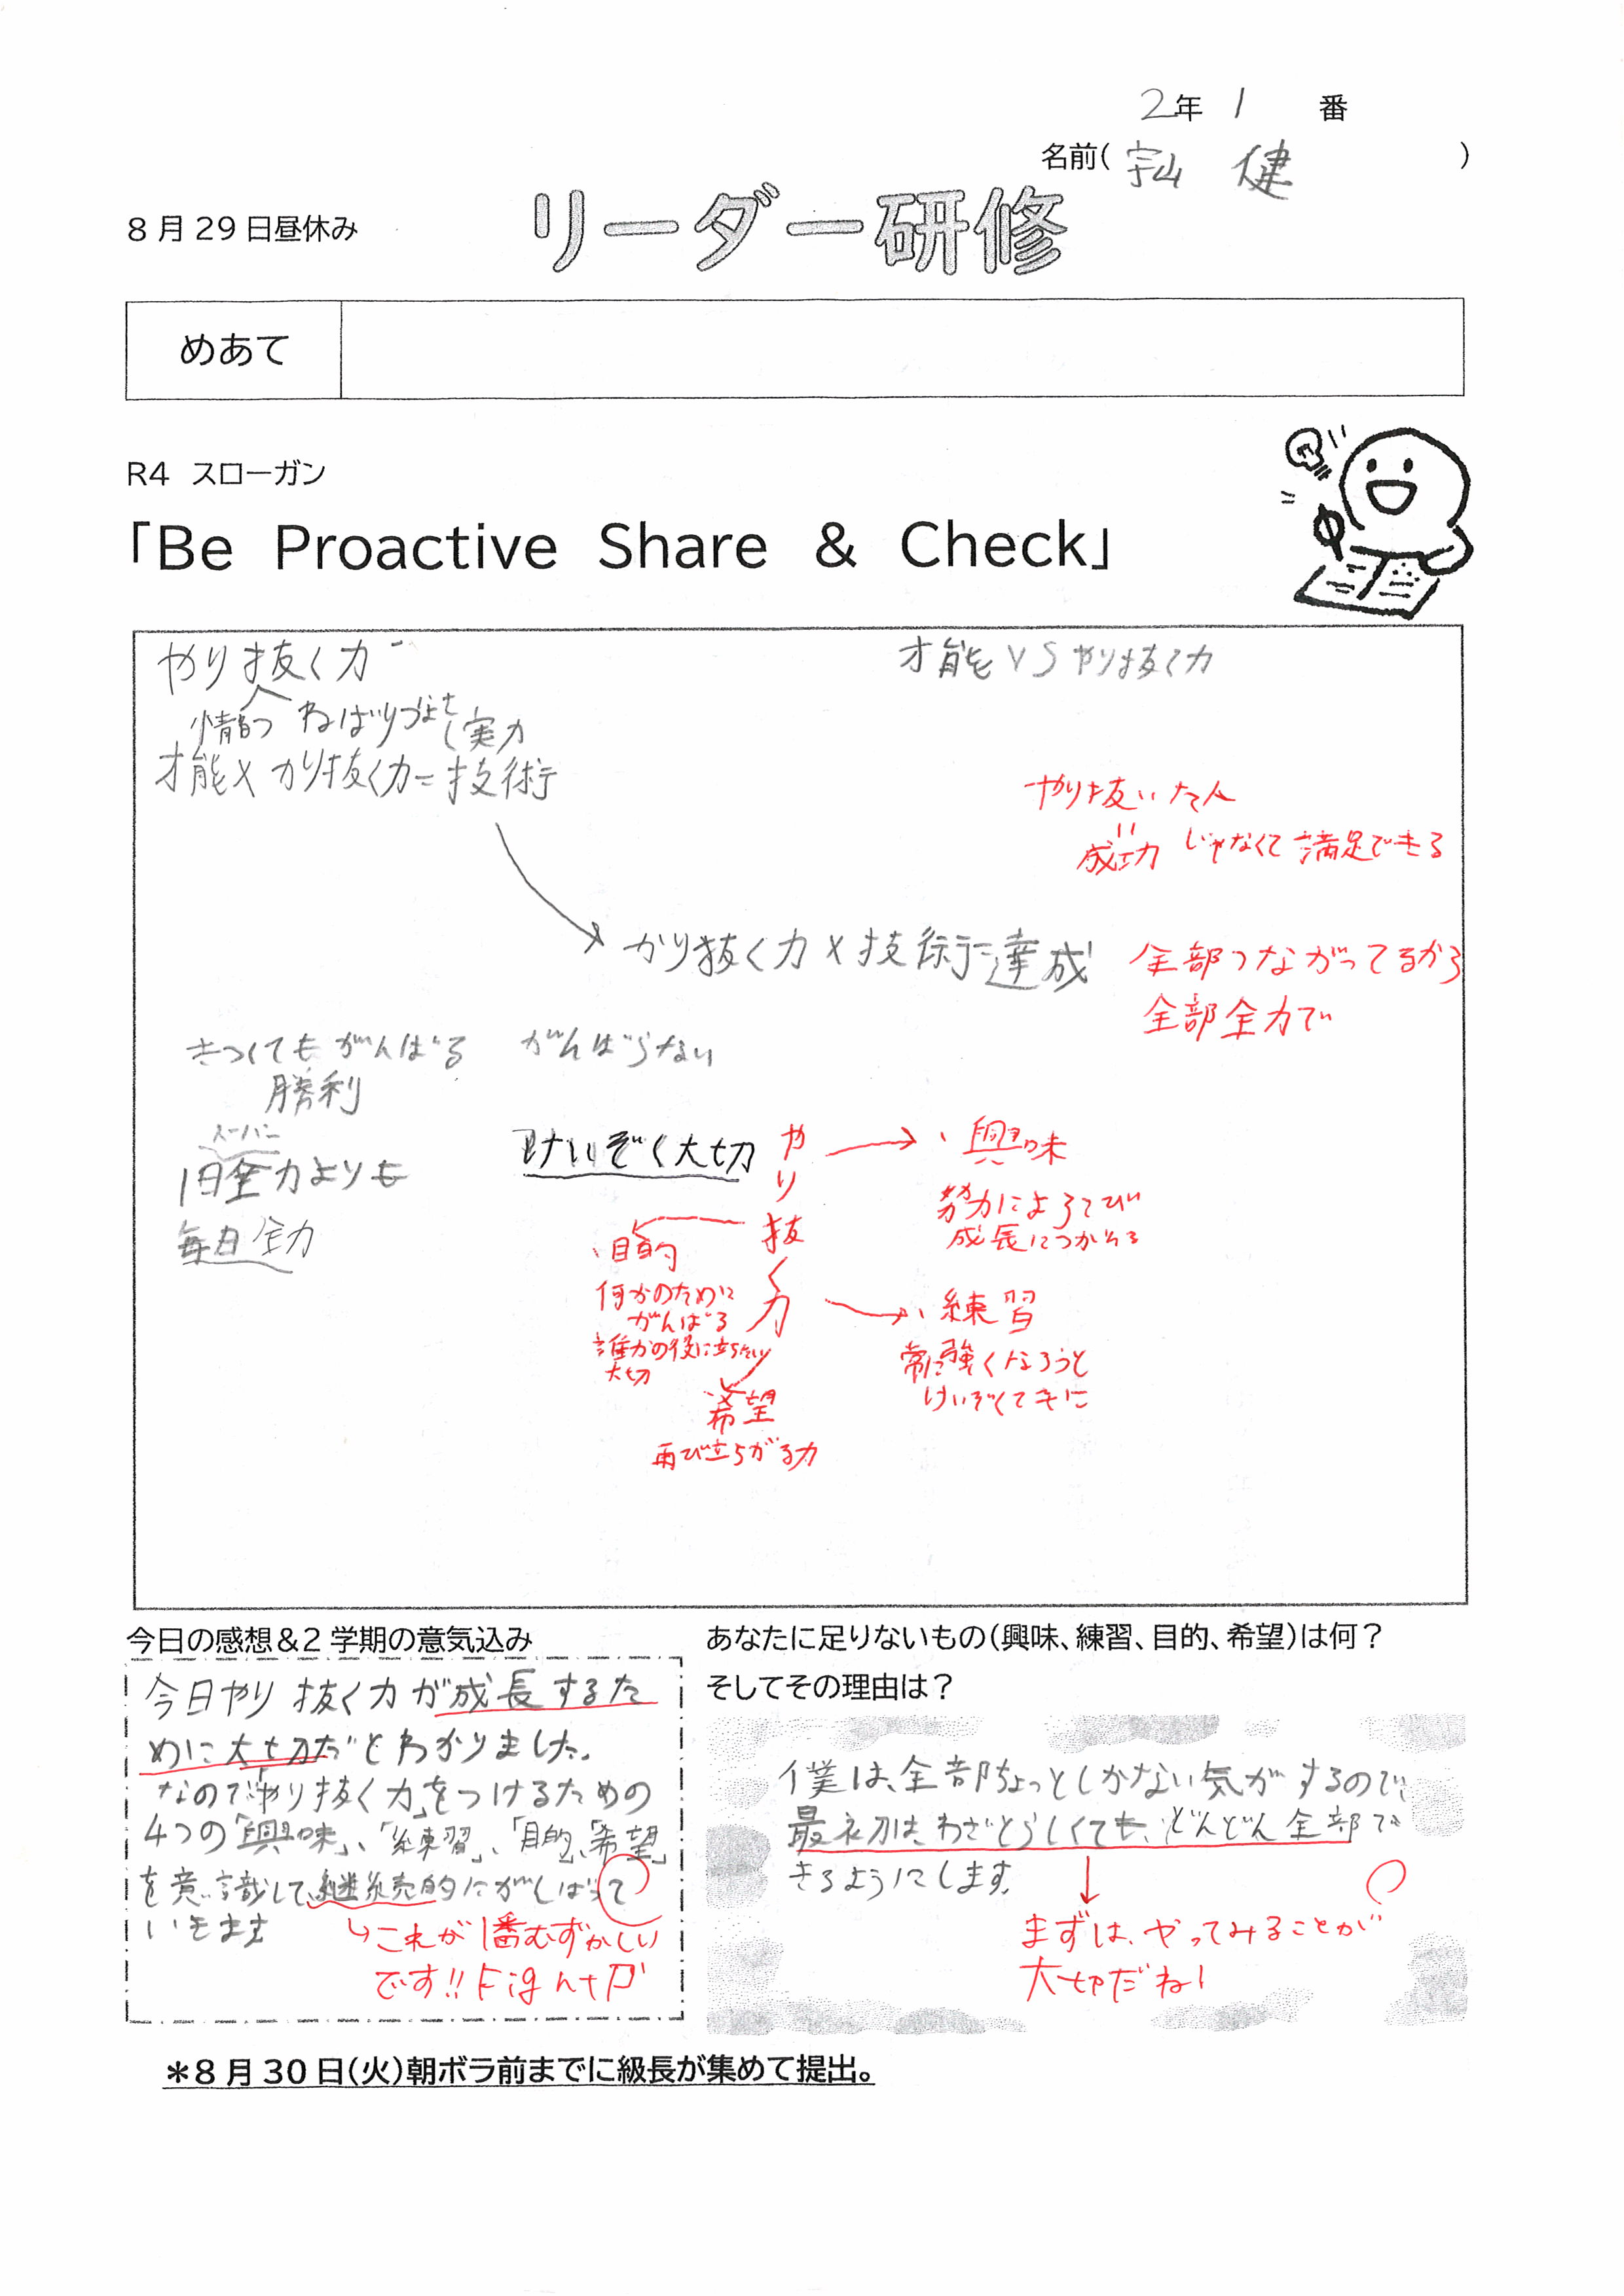 2年 1 番
名前( 宇山 健 )
8月29日昼休み
リーダー研修
めあて
R4 スローガン
「Be Proactive Share & Check」
やり抜く力
情熱 ねばりづよさ
実力
才能×やり抜く力=技術
才能VSやり抜く力
やり抜いた人
成功 じゃなくて満足できる
やり抜く力×技術=達成
全部つながってるから
全部全力で
きつくてもがんばる がんばらない
勝利
スーパー
1日全力よりも
毎日全力
けいぞく大切
やり抜く力
・興味
努力によろこび
成長につながる
・目的
何かのために
がんばる
誰かの役に立ちたい
大切
・練習
常に強くなろうと
けいぞくてきに
希望
再び立ちがる力
今日の感想&2学期の意気込み
今日やり抜く力が成長するた
めに大切だとわかりました。
なので「やり抜く力」をつけるための
4つの「興味」、「練習」、「目的」、「希望」
を意識して、継続的にがんばって
いきます
↳これが1番むずかしい
です!! Fight
あなたに足りないもの(興味、練習、目的、希望)は何?
そしてその理由は?
僕は、全部ちょっとしかない気がするので、
最初は、わざとらしくても、どんどん全部で
きるようにします。
まずは、やってみることが
大切だね!
*8月30日(火)朝ボラ前までに級長が集めて提出。